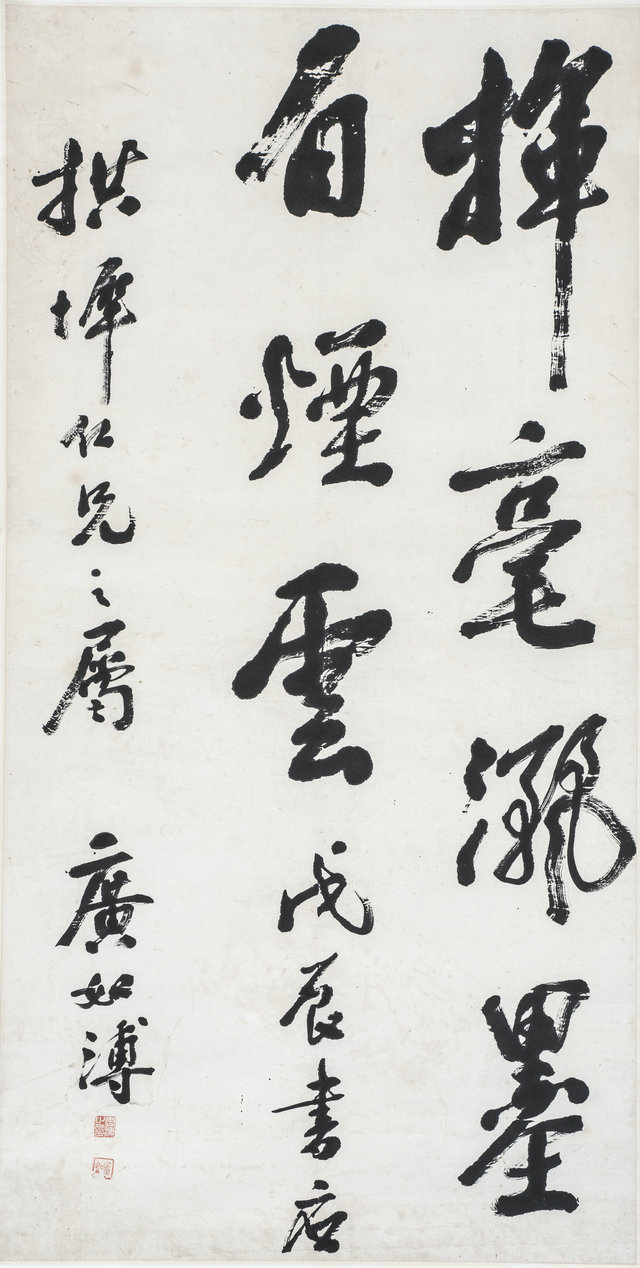 揮毫灑墨
看煙雲 戊辰書應
拱仁兄之屬 廣如溥